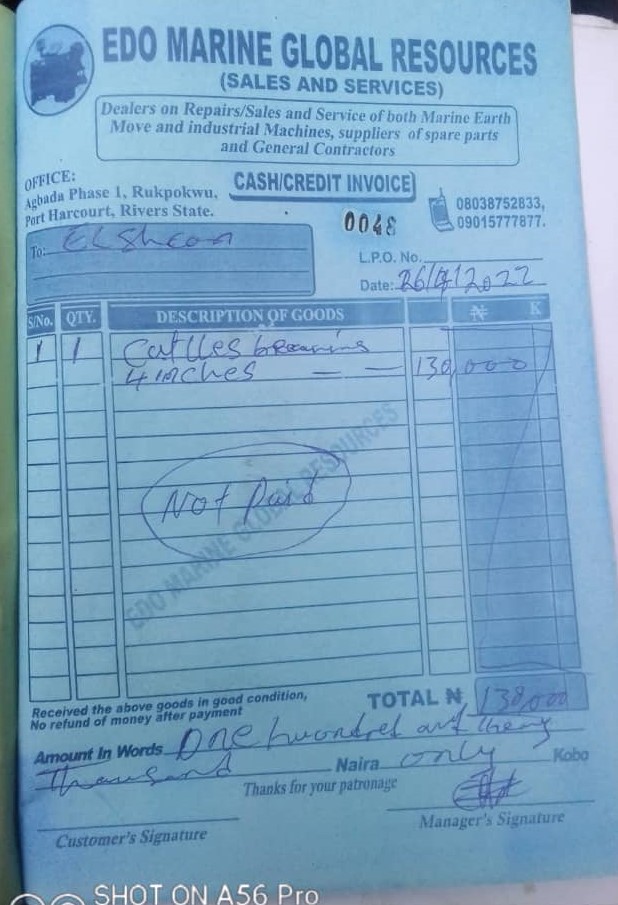 EDO MARINE GLOBAL RESOURCES
(SALES AND SERVICES)
Dealers on Repairs/Sales and Service of both Marine Earth
Move and industrial Machines, suppliers of spare parts
and General Contractors
OFFICE:
Agbada Phase 1, Rukpokwu,
Port Harcourt, Rivers State.
CASH/CREDIT INVOICE
08038752833,
09015777877.
0048
To:
L.P.O. No.
Date: 26/4/2022
S/No. QTY. DESCRIPTION OF GOODS ₦ K
1 1 Cutlles
4 inches — — 130,000
Not Paid
EDO MARINE GLOBAL RESOURCES
Received the above goods in good condition,
No refund of money after payment
TOTAL ₦ 130,000
Amount In Words One hundred and
Thousand Naira only Kobo
Thanks for your patronage
Customer's Signature
Manager's Signature
SHOT ON A56 Pro